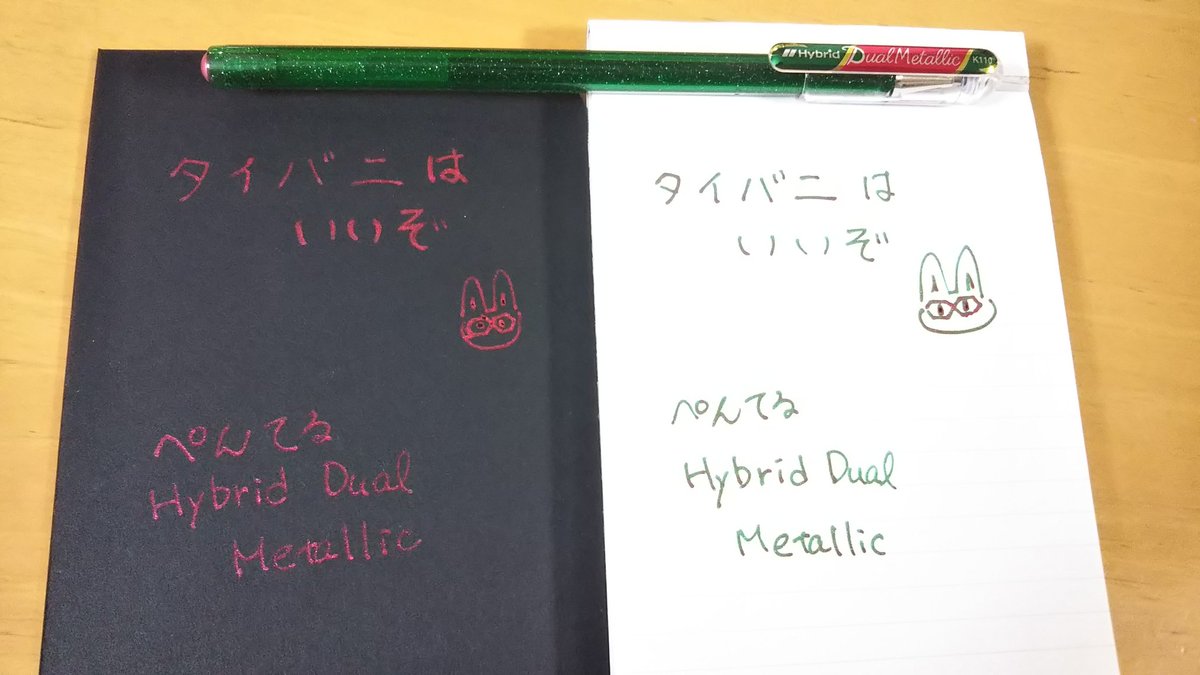 Hybrid Dual Metallic K110
タイバニは
いいぞ
ぺんてる
Hybrid Dual
Metallic
タイバニは
いいぞ
ぺんてる
Hybrid Dual
Metallic